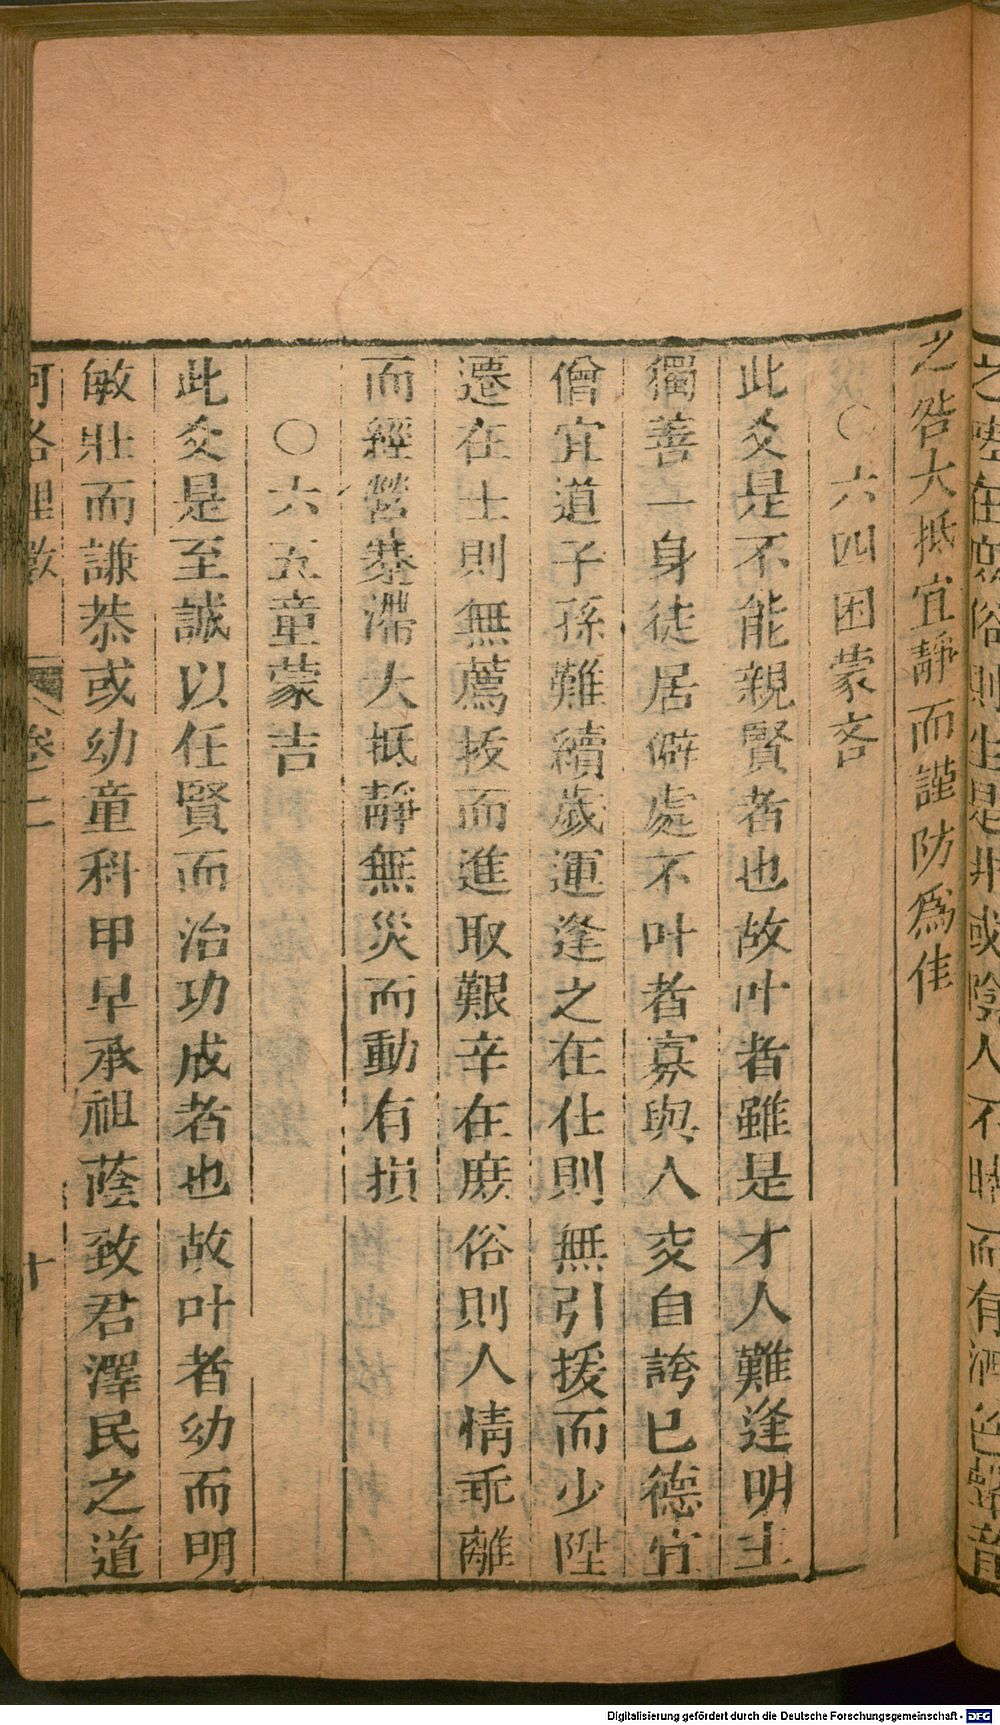 之咎大抵宜靜而謹防爲佳
○六四困蒙吝
此爻是不能親賢者也故叶者雖是才人難逢明主
獨善一身徒居僻處不叶者寡與人交自誇已德宜
僧宜道子孫難續歲運逢之在仕則無引援而少陞
遷在士則無薦拔而進取艱辛在庶俗則人情乖離
而經營蹇滯大抵靜無災而動有損
○六五童蒙吉
此爻是至誠以任賢而治功成者也故叶者幼而明
敏壯而謙恭或幼童科甲早承祖蔭致君澤民之道
河洛理數 卷二 十
Digitalisierung gefördert durch die Deutsche Forschungsgemeinschaft - DFG